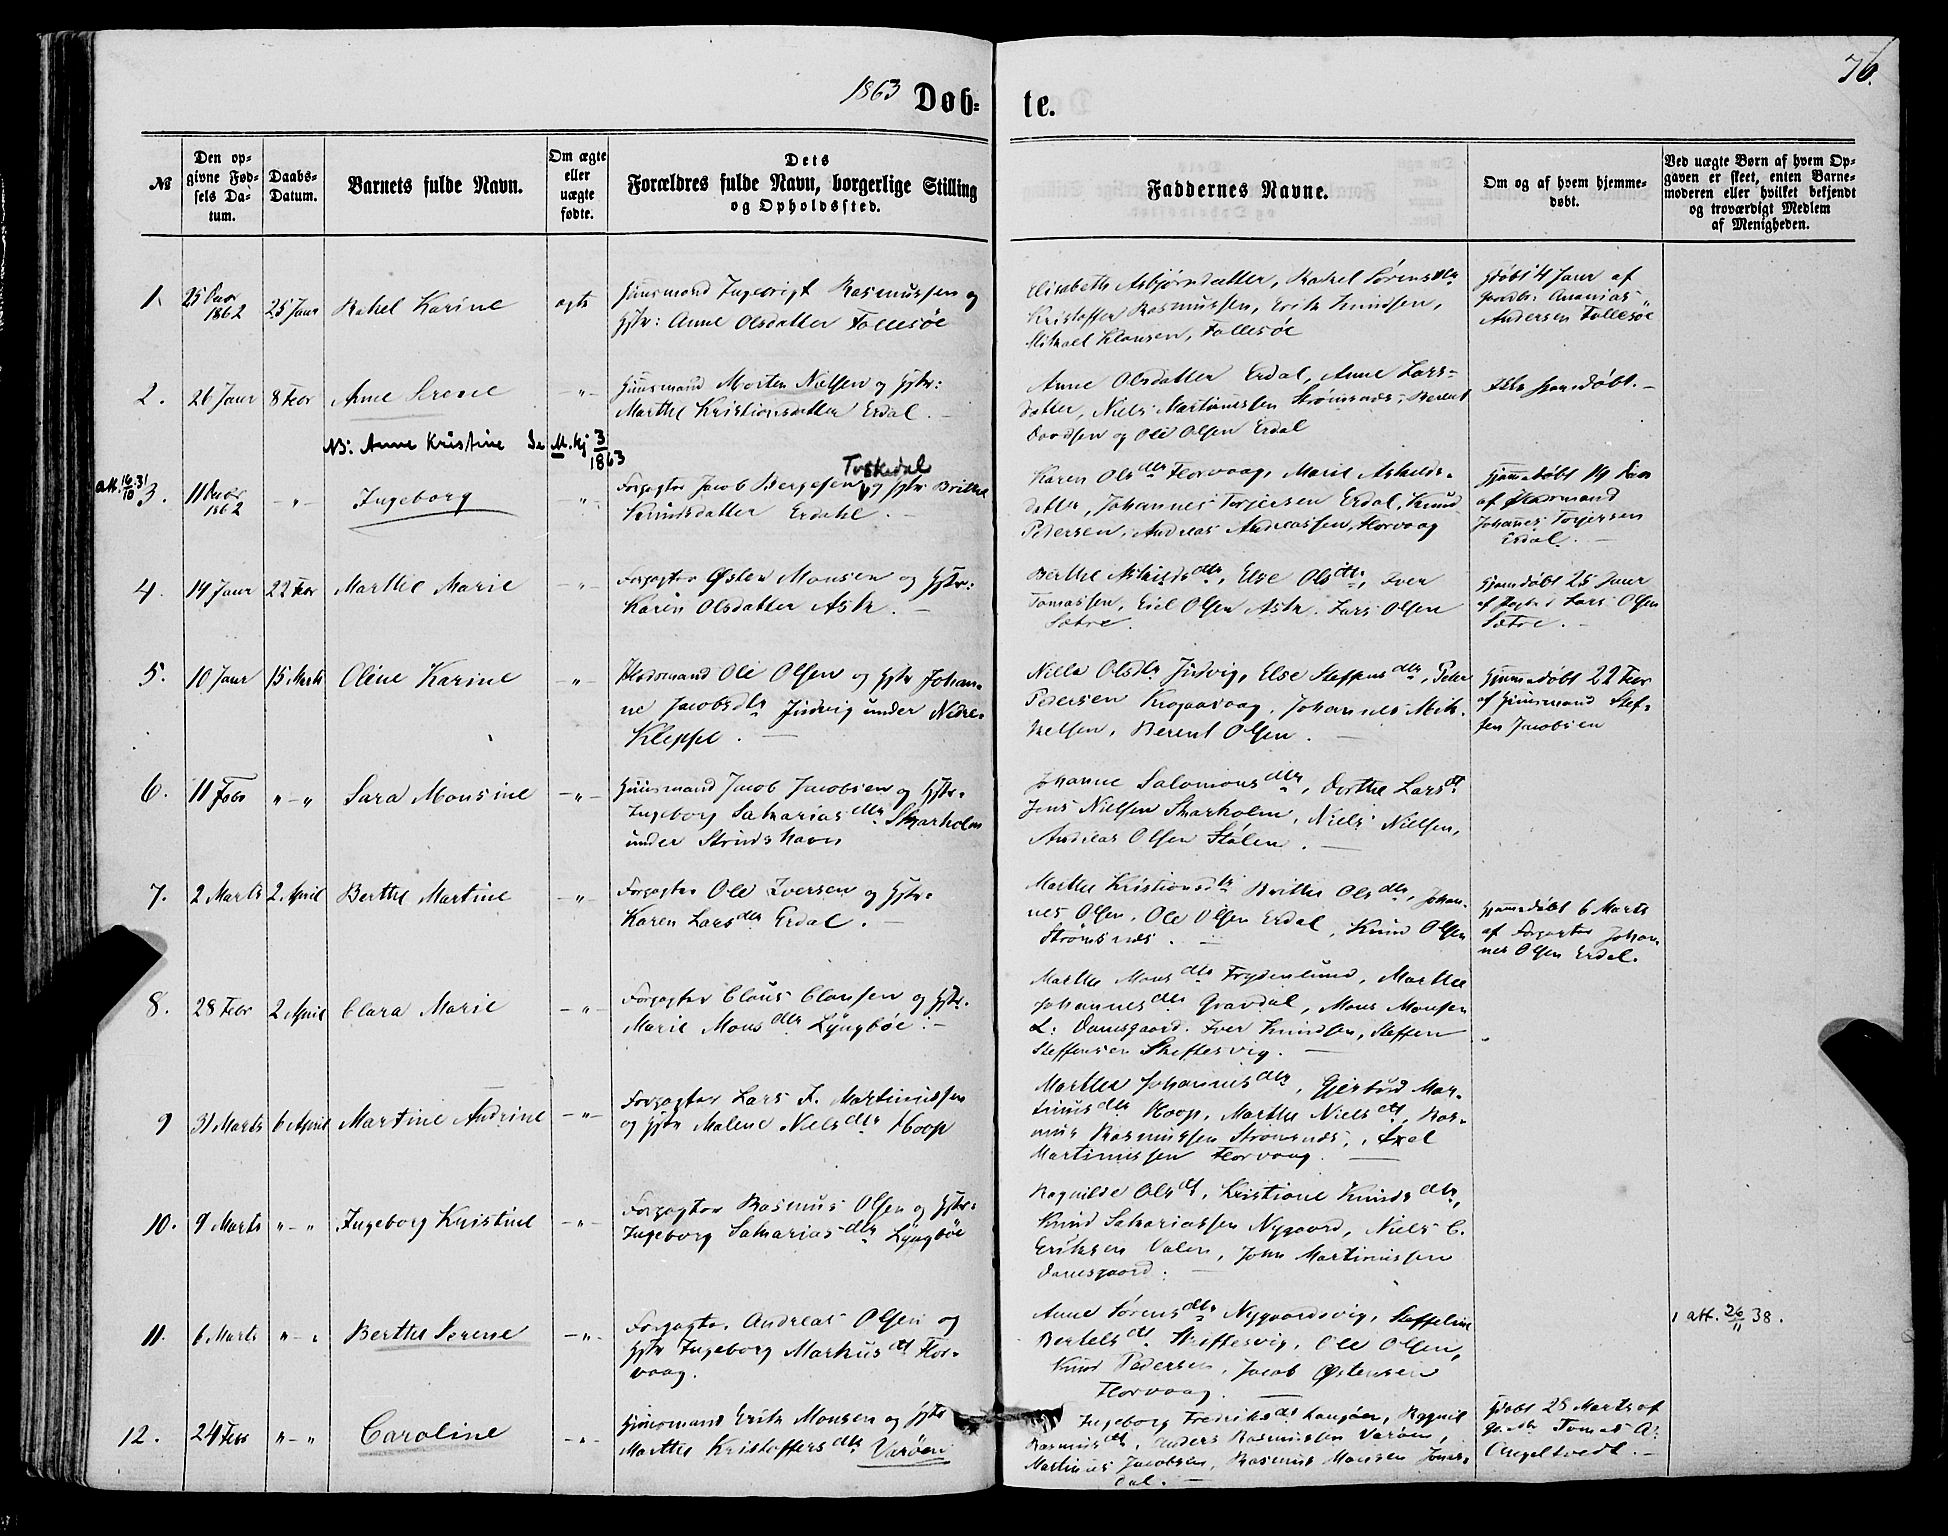 1863
Døb=
te.
76.
№
Den op=
givne Fød=
sels Da=
tum.
Daabs=
Datum.
Barnets fulde Navn.
Om ægte
eller
uægte
fødte.
Dets
Forældres fulde Navn, borgerlige Stilling
og Opholdssted.
Faddernes Navne.
Om og af hvem hjemme=
døbt.
Ved uægte Børn af hvem Op=
gaven er skeet, enten Barne=
moderen eller hvilket bekjendt
og troværdigt Medlem
af Menigheden.
1.
25 Decbr
1862
25 Janr
Rakel Karine
ægte
Huusmand Ingebrigt Rasmussen og
Hstr: Anne Olsdatter Follesøe
Elisabeth Asbjørnsdatter, Rakel Sørensdtr
Kristoffer Rasmussen, Erik Knudsen,
Mikael Klausen, Follesøe
Hjdøbt 4 Janr af
Ananias
Andersen Follesøe
2.
26 Janr
8 Febr
Anne
-"-
Huusmand Morten Nielsen og Hstr:
Marthe Kristiansdatter Erdal. -
Anne Olsdatter Erdal, Anne Lars=
datter, Niels Martinussen Strømsnes, Berent
og Ole Olsen Erdal
Ikke hjemdøbt. -
NB: Anne Kristine Se M. kj 3/1863
att. 16/10 31
3.
11 Decbr
1862
-"-
Ingeborg
"
Forpagter Jacob Børgesen Toskedal og Hstr Brithe
Knudsdatter Erdahl.
Karen Olsdtr Florvaag, Marie Askelds=
datter, Johannes Torjersen Erdal, Knud
Pedersen, Andreas Andreassen, Florvaag
Hjemmedøbt 19 Decbr
af
Johanes Torjersen
Erdal. -
4.
19 Janr
22 Febr
Marthe Marie
-"-
Forpagter Østen Monsen og Hstr:
Karen Olsdatter Ask. -
Berthe Askildsdtr, Else Olsdtr, Iver
Tomassen, Eiel Olsen Ask. Lars Olsen
Sætre.
Hjemdøbt 25 Janr
af Lars Olsen
Sætre. -
5.
10 Janr
15 Marts
Oline Karine
-"-
Ole Olsen og Hstr Johan=
ne Jacobsdtr Juvig under Nedre=
Kleppe. -
Nille Olsdtr Juvig, Else Steffensdtr, Peter
Pedersen Krogaasvaag, Johannes Mik=
kelsen, Berent Olsen. -
Hjemmedøbt 22 Febr
af Huusmand Stef=
fen Jacobsen
6.
11 Febr
"-"
Sara Monsine
-"-
Huusmand Jacob Jacobsen og Hstr.
Ingeborg Sakariasdtr Skarholm
under Strudshavn
Johanne Salomonsdtr, Dorthe Larsdt
Jens Nielsen Skarholm, Niels Nielsen,
Andreas Olsen Stølen. -
7.
2 Marts
2 April
Berthe Martine
-"-
Forpagter Ole Iversen og Hstr.
Karen Larsdtr Erdal.
Marthe Kristiansdtr Brithe Olsdtr, Johan=
nes Olsen, Ole Olsen Erdal, Knud Olsen
Strømsnes. -
Hjemmedøbt 6 Marts
af Forpagter Johan=
nes Olsen Erdal.
8.
28 Febr
2 April
Clara Marie
-"-
Forpagter Claus Clausen og Hstr.
Marie Monsdtr Lyngbøe. -
Marthe Monsdtr Frydenlund, Marthe
Johannesdtr Gravdal, Mons Monsen
L: Damsgaard. Iver Knudsen, Steffen
Steffensen Skeftesvig. -
9
31 Marts
6 April
Martine Andrine
-"-
Forpagter Lars F. Martinussen
og Hstr Malene Nielsdtr Hoop
Marthe Johannesdtr, Gjertrud Mar=
tinusdtr Hoop, Marthe Nielsdt, Ras=
mus Rasmussen Strømsnes, Axel
Martinussen Florvaag. -
10.
9 Marts
"-"
Ingeborg Kristine
-"-
Forpagter Rasmus Olsen og Hstr:
Ingeborg Sakariasdtr Lyngbøe
Ragnilde Olsdt, Kristiane Knudsdtr,
Knud Sakariassen Nygaard, Niels C.
Eriksen Valen, John Martinussen
Damsgaard. -
11.
6 Marts
"-"
Berthe Serene
-"-
Forpagter Andreas Olsen og
Hstr Ingeborg Markusdt Flor=
vaag.
Anne Sørensdtr Nygaardsvig, Steffeline
Bertelsdt Skeftesvig, Ole Olsen,
Knud Pedersen, Jacob Østensen
Florvaag. -
1 att. 26/11 38.
12.
24 Febr
"-"
Caroline
-"-
Huusmand Erik Monsen og Hstr
Marthe Kristoffersdtr Varøen
Ingeborg Fredriksdt Langøen, Ragnil
Rasmusdt, Anders Rasmussen Varøen,
Martinus Jacobsen, Rasmus Monsen Jons=
dal. -
Hjdøbt 25 Marts af
Tomas A:
Angeltvedt. -